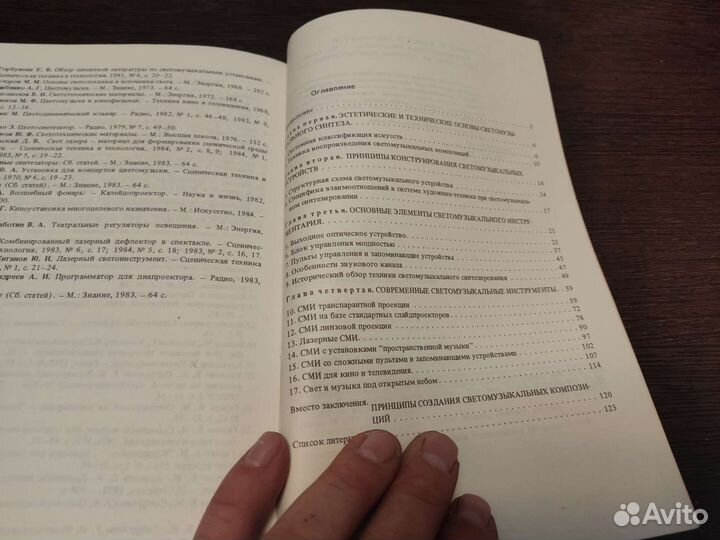 Горбунова Е. В. Обзор патентной литературы по светомузыкальным установкам. –
ценическая техника и технология, 1981, № 6, с. 20–22.
уторов М. М. Основы светотехники и источники света. – М.: Энергия, 1968. – 392 с.
А. Г. Цветомузыка. – М.: Знание, 1973. – 64 с.
В. Н. Светотехнические материалы. – М.: Энергия, 1972. – 168 с.
М. Ф. Цветомузыка в кинофильмах. – Техника кино и телевидения, 1968,
с. 13–16.
М. Цветодинамический кларнет. – Радио, 1982, № 1, с. 46–48; 1983, № 9,
Э. Цветосинтезатор. – Радио, 1979, № 7, с. 49–50.
Ю. Ф. Светотехнические материалы. – М.: Высшая школа, 1976. – 152 с.
Д. В. Свет лазера – материал для формирования сценической среды
Сценическая техника и технология, 1984, № 2, с. 8, 9; 1984, № 1,
1983, № 5, с. 19–22.
синтезаторы: Сб. статей). – М.: Знание, 1983. – 64 с.
А. Установка для концертов цветомузыки. – Сценическая техника и
1970, № 6, с. 19–23.
А. Волшебный фонарь: – Калейдопроектор. – Наука и жизнь, 1982,
Г. Киноустановка многоцелевого назначения. – М.: Искусство, 1984. –
В. А. Театральные регуляторы освещения. – М.: Энергия,
Комбинированный лазерный дефлектор в спектакле. – Сценичес-
технология, 1983, № 6, с. 17; 1984, № 5, с. 18; 1983, № 2, с. 16, 17.
Ю. И. Лазерный светоинструмент. – Сценическая техника
№ 1, с. 21–24.
А. И. Программатор для диапроектора. – Радио, 1983,
(Сб. статей). – М.: Знание, 1983. – 64 с.
Оглавление
3
первая. ЭСТЕТИЧЕСКИЕ И ТЕХНИЧЕСКИЕ ОСНОВЫ СВЕТОМУЗЫ
ЛЬНОГО СИНТЕЗА
Системная классификация искусств 6
Техника воспроизведения светомузыкальных композиций 10
Глава вторая. ПРИНЦИПЫ КОНСТРУИРОВАНИЯ СВЕТОМУЗЫКАЛЬНЫХ
УСТРОЙСТВ 14
Структурная схема светомузыкального устройства 14
Специфика взаимоотношений в системе художник-техника при светомузыкаль-
ном синтезировании 17
Глава третья. ОСНОВНЫЕ ЭЛЕМЕНТЫ СВЕТОМУЗЫКАЛЬНОГО ИНСТРУ-
МЕНТАРИЯ
5. Выходное оптическое устройство
6. Блок управления мощностью
7. Пульты управления и запоминающие устройства
8. Особенности звукового канала
9. Исторический обзор техники светомузыкального синтезирования 49
Глава четвертая. СОВРЕМЕННЫЕ СВЕТОМУЗЫКАЛЬНЫЕ ИНСТРУМЕНТЫ 59
10. СМИ транспарантной проекции 59
11. СМИ на базе стандартных слайдпроекторов 72
12. СМИ линзовой проекции 78
13. Лазерные СМИ 90
14. СМИ с установками "пространственной музыки" 97
15. СМИ со сложными пультами и запоминающими устройствами 102
16. СМИ для кино и телевидения 107
17. Свет и музыка под открытым небом 114
Вместо заключения. ПРИНЦИПЫ СОЗДАНИЯ СВЕТОМУЗЫКАЛЬНЫХ КОМПОЗИ-
ЦИЙ 120
Список литера 123
Avito